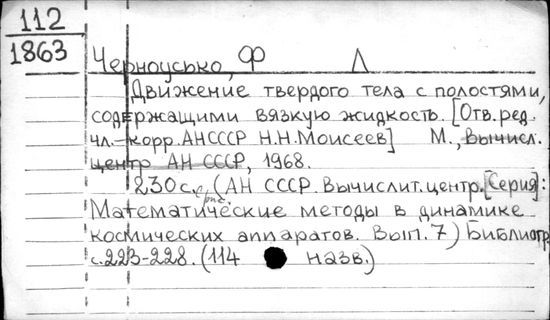 112
1863
Черноусько, Ф Л
Движение твердого тела с полостями,
содержащими вязкую жидкость. [Отв. ред.
чл.-корр. АНСССР Н.Н. Моисеев] М., Вычисл.
центр АН СССР, 1968.
230 с. с рис. (АН СССР. Вычислит. центр. [Серия]:
Математические методы в динамике
космических аппаратов. Вып. 7) Библиогр.
с. 223-228. (114 назв.)